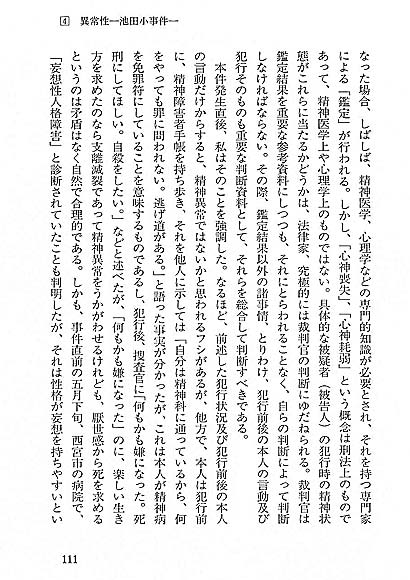 4 異常性―池田小事件―
なった場合、しばしば、精神医学、心理学などの専門的知識が必要とされ、それを持つ専門家
による「鑑定」が行われる。しかし、「心神喪失」、「心神耗弱」という概念は刑法上のもので
あって、精神医学上や心理学上のものではない。具体的な被疑者（被告人）の犯行時の精神状
態がこれらに当たるかどうかは、法律家、究極的には裁判官の判断にゆだねられる。裁判官は
鑑定結果を重要な参考資料にしつつも、それにとらわれることなく、自らの判断によって判断
しなければならない。その際、鑑定結果以外の諸事情、とりわけ、犯行前後の本人の言動及び
犯行そのものも重要な判断資料として、それらを総合して判断すべきである。
本件発生直後、私はそのことを強調した。なるほど、前述した犯行状況及び犯行前後の本人
の言動だけからすると、精神異常ではないかと思われるフシがあるが、他方で、本人は犯行前
に、精神障害者手帳を持ち歩き、それを他人に示しては「自分は精神科に通っているから、何
をやっても罪に問われない。逃げ道がある。」と語った事実が分かったが、これは本人が精神病
を免罪符にしていることを意味するものであるし、犯行後、捜査官に「何もかも嫌になった。死
刑にしてほしい。自殺をしたい。」などと述べたが、「何もかも嫌になった」のに、楽しい生き
方を求めたのなら支離滅裂であって精神異常をうかがわせるけれども、厭世感から死を求める
というのは矛盾はなく自然で合理的である。しかも、事件直前の五月下旬、西宮市の病院で、
「妄想性人格障害」と診断されていたことも判明したが、それは性格が妄想を持ちやすいとい
111